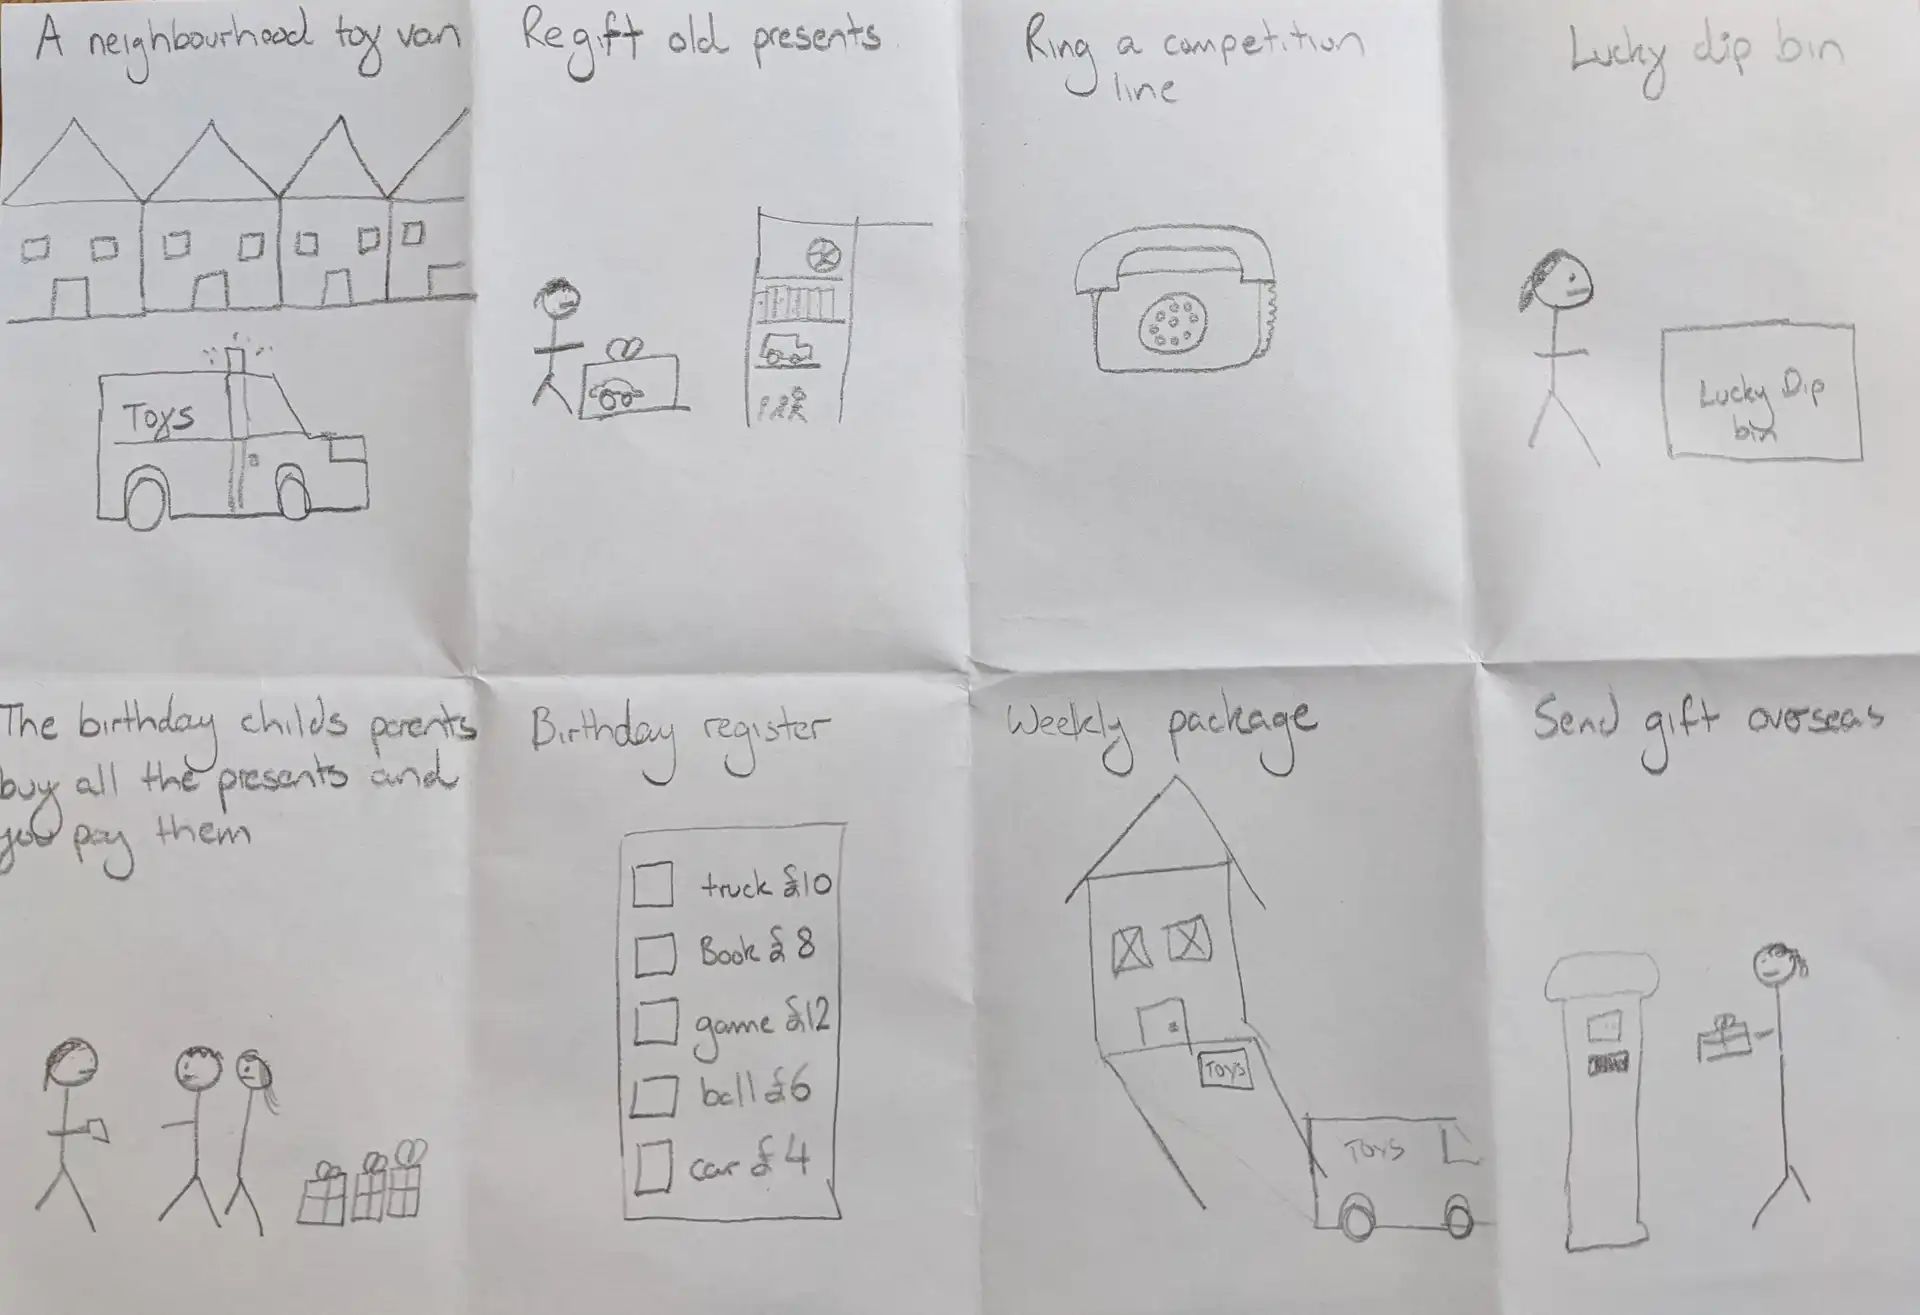 A neighbourhood toy van
TOYS
Regift old presents
Ring a competition
line
Lucky dip bin
Lucky Dip
bin
The birthday childs parents
buy all the presents and
you pay them
Birthday register
truck £10
Book £8
game £12
ball £6
car £4
Weekly package
TOYS
TOYS
Send gift overseas